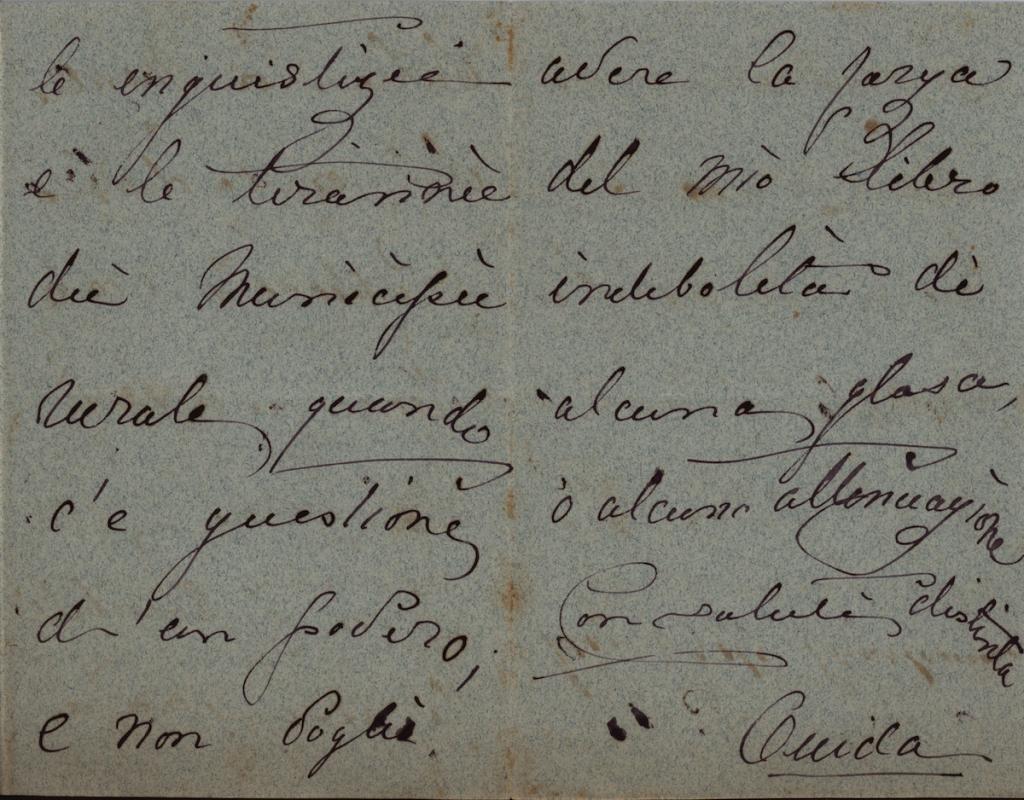 le enguistizie
e le tirannie
dei Municipie
rurale quando
c'e questione
d'un podero,
e non voglio
avere la forza
del mio libro
indebolita di
alcuna glosa,
o alcuna attenuazione
Con saluti distinta
Ouida